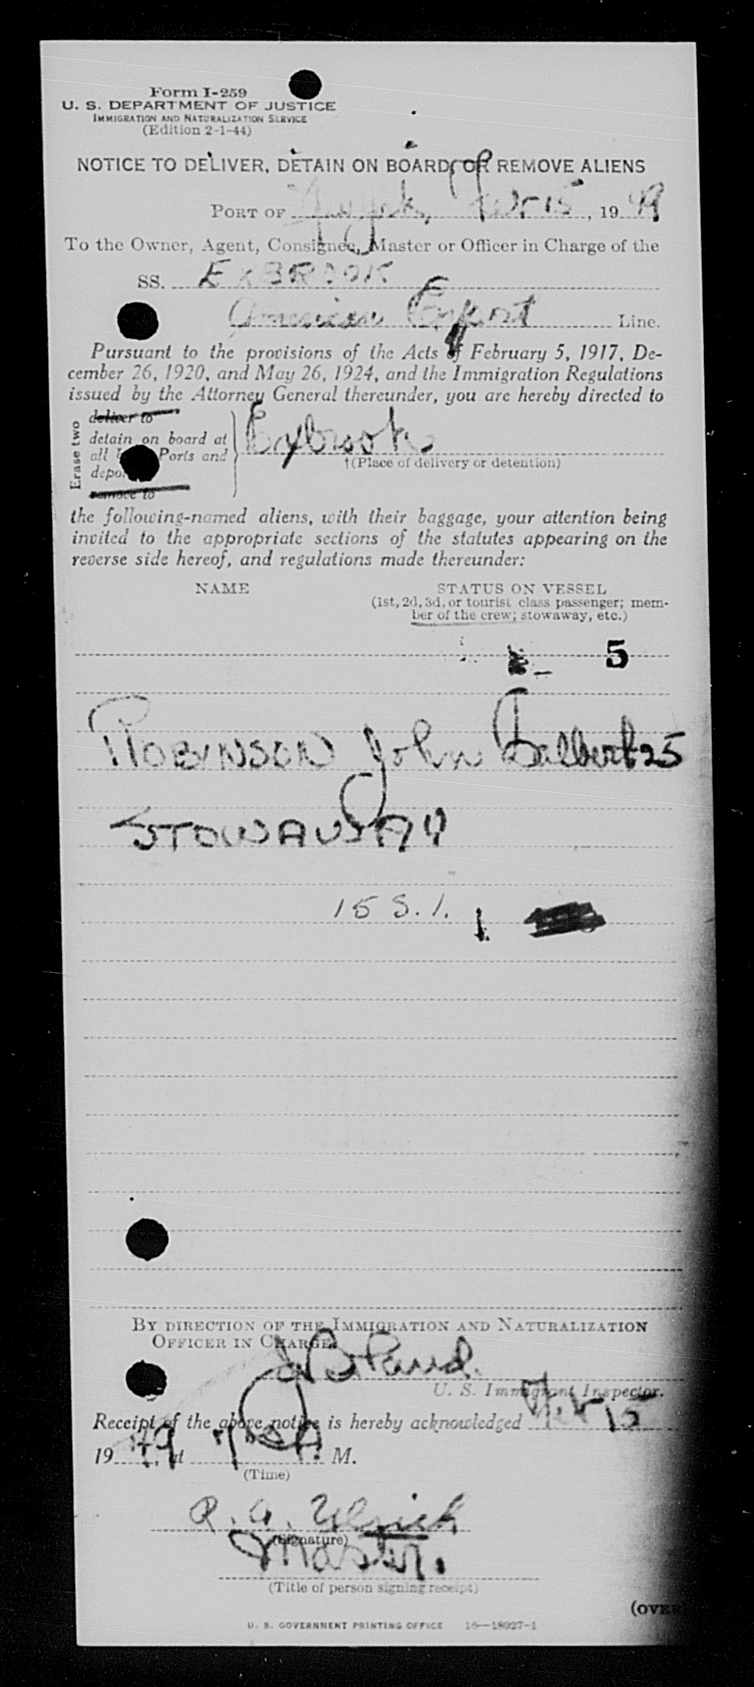 Form I-259
U. S. DEPARTMENT OF JUSTICE
IMMIGRATION AND NATURALIZATION SERVICE
(Edition 2-1-44)
NOTICE TO DELIVER, DETAIN ON BOARD, OR REMOVE ALIENS
PORT OF New York, Febr 15, 1949
To the Owner, Agent, Consignee, Master or Officer in Charge of the
SS. EXBROOK
American Export Line.
Pursuant to the provisions of the Acts of February 5, 1917, De-
cember 26, 1920, and May 26, 1924, and the Immigration Regulations
issued by the Attorney General thereunder, you are hereby directed to
Erase two
deliver to
detain on board at
all Ports and
remove to
Exbrook
†(Place of delivery or detention)
the following-named aliens, with their baggage, your attention being
invited to the appropriate sections of the statutes appearing on the
reverse side hereof, and regulations made thereunder:
NAME STATUS ON VESSEL
(1st, 2d, 3d, or tourist class passenger; mem-
ber of the crew; stowaway, etc.)
5
ROBINSON John Gilbert 25
STOWAWAY
15 S. 1.
BY DIRECTION OF THE IMMIGRATION AND NATURALIZATION
OFFICER IN CHARGE.
U. S. Immigrant Inspector.
Receipt of the above notice is hereby acknowledged Febr 15
1949, at A. M.
(Time)
(Signature)
Master.
(Title of person signing receipt)
(OVER)
U. S. GOVERNMENT PRINTING OFFICE 16—18027-1